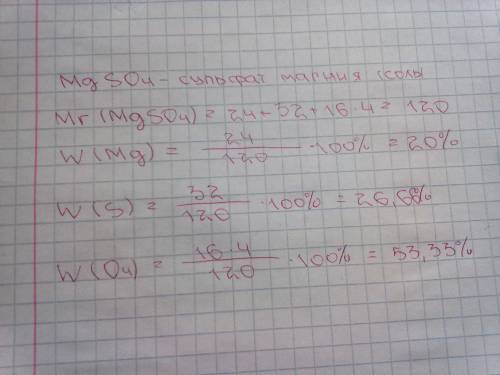 MgSO4 - сульфат магния (соль
Mr (MgSO4) = 24 + 32 + 16 · 4 = 120
W (Mg) = 24/120 · 100% = 20%
W (S) = 32/120 · 100% = 26,68%
W (O4) = 16·4/120 · 100% = 53,33%